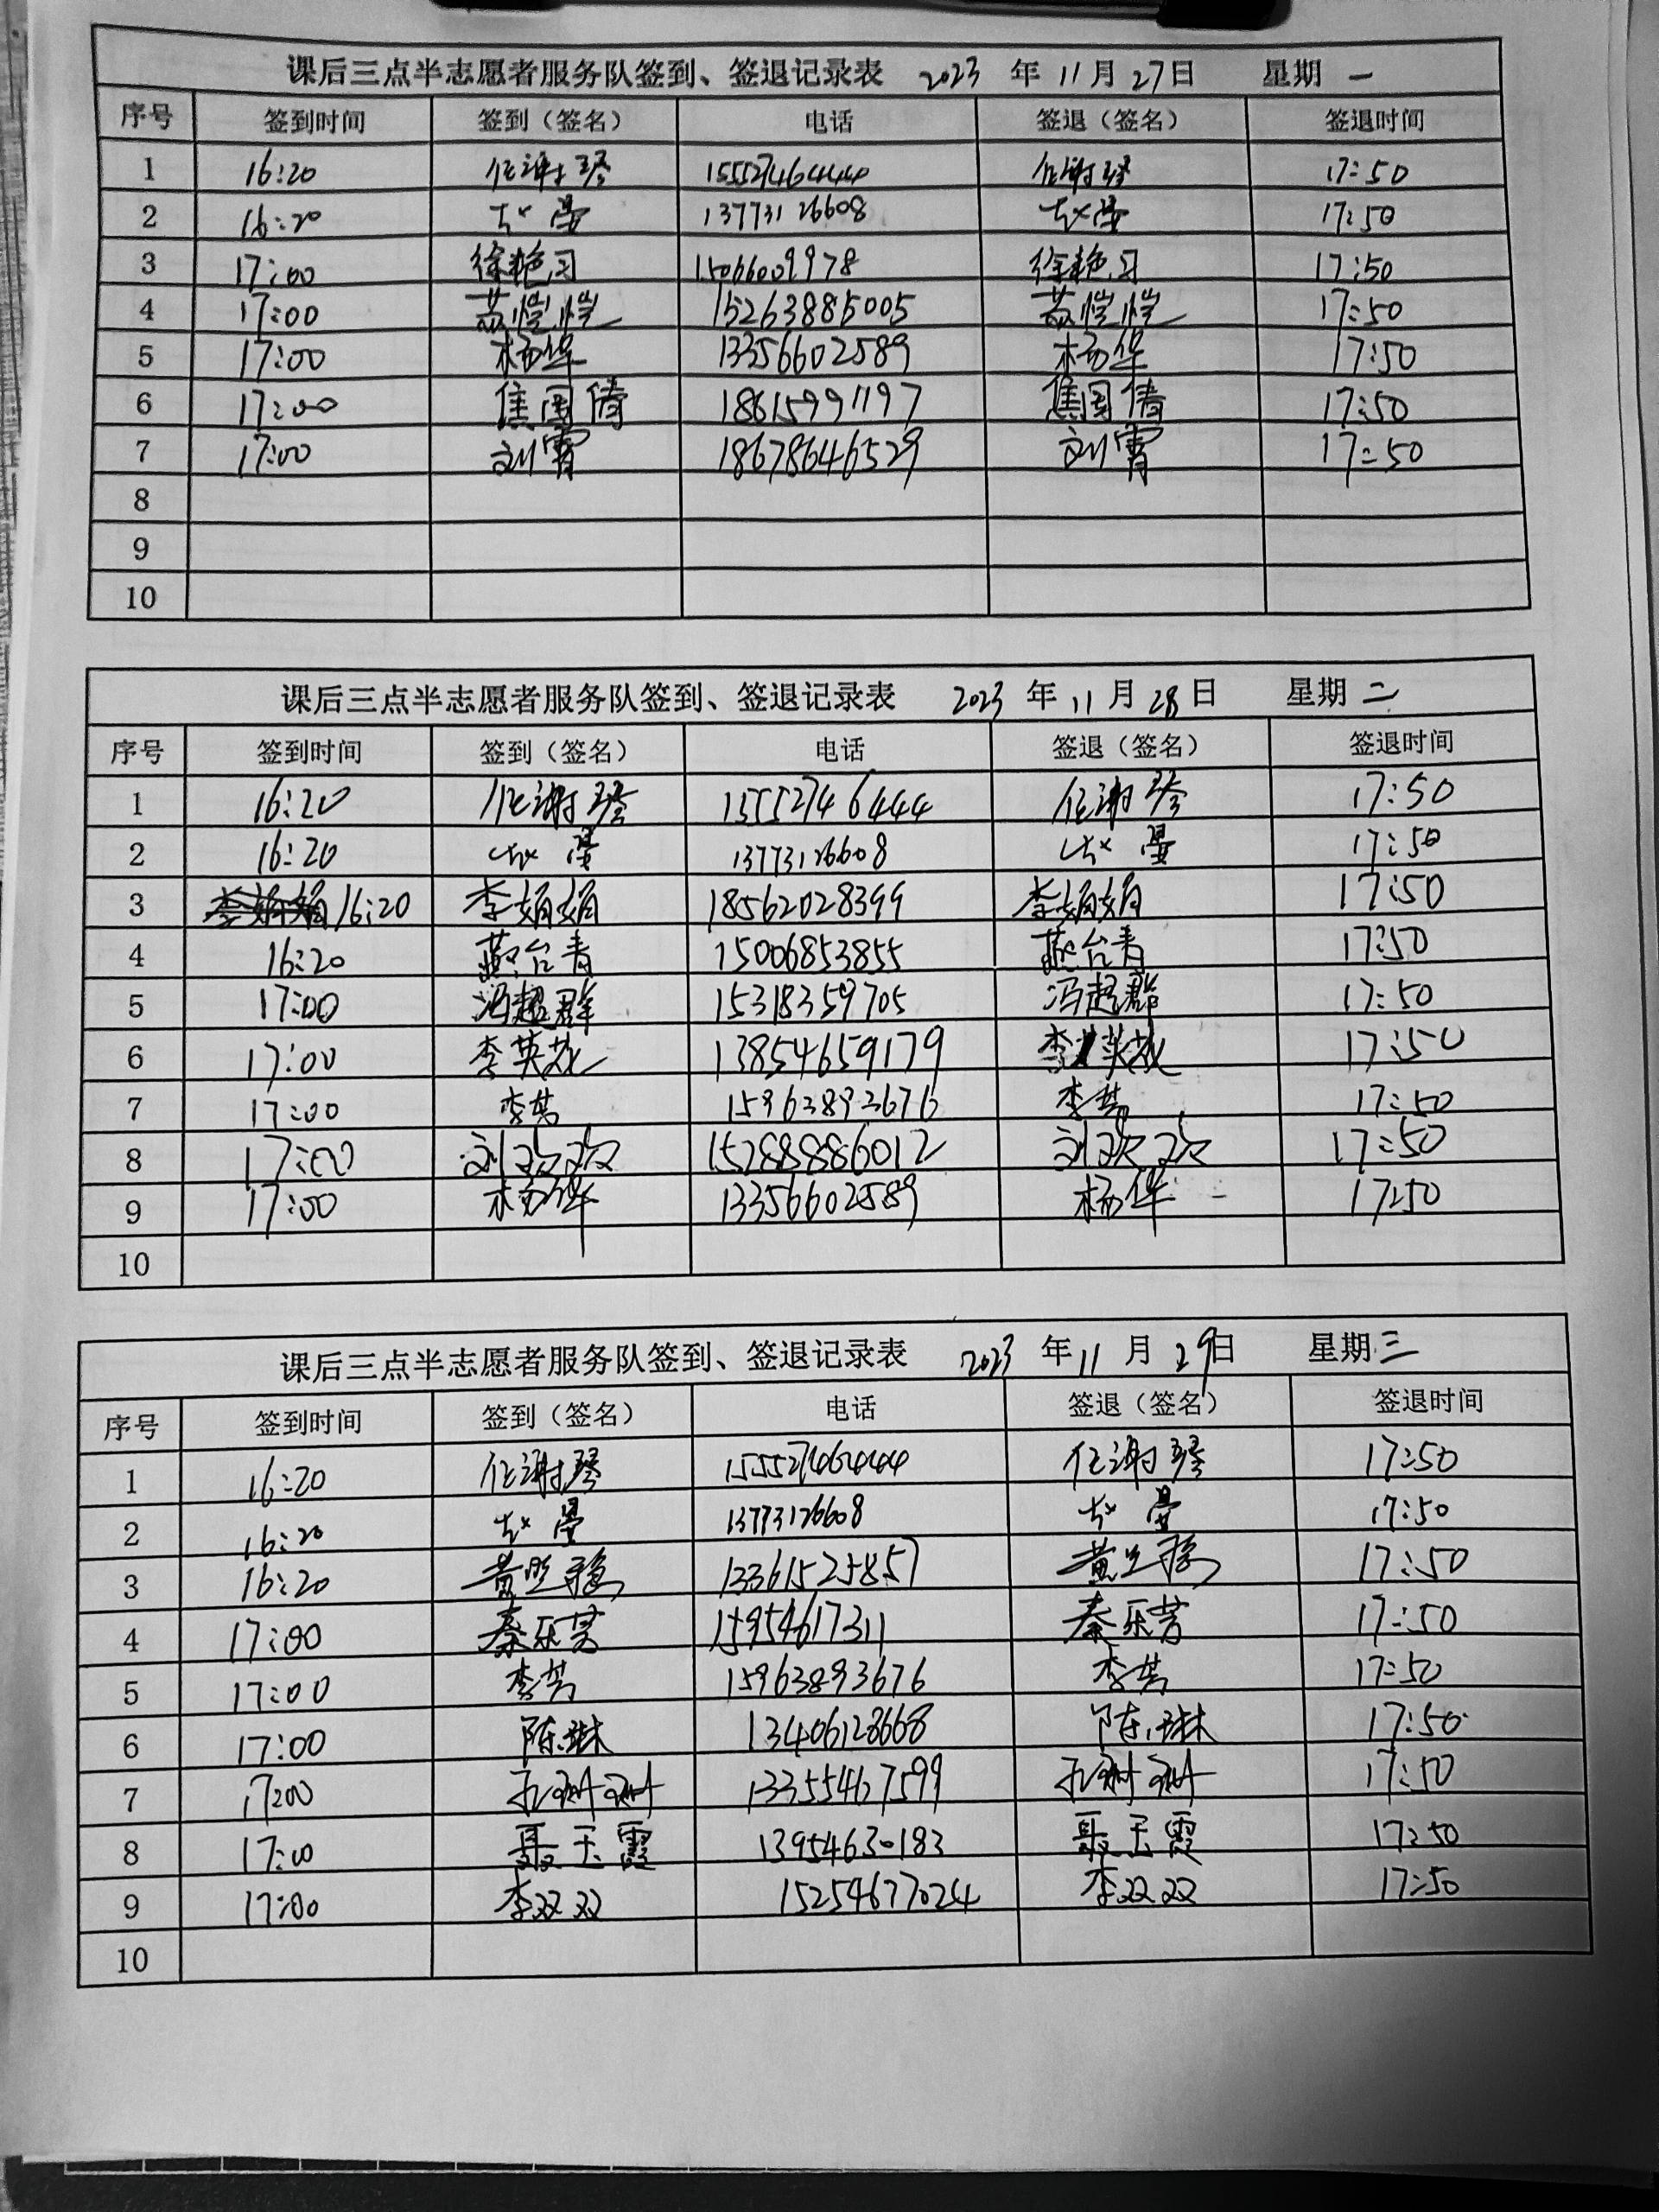 课后三点半志愿者服务队签到、签退记录表 2023 年 11 月 27 日 星期 一
序号 签到时间 签到（签名） 电话 签退（签名） 签退时间
1 16:20 任谢琴 15552746444 任谢琴 17:50
2 16:20 赵曼 13773126608 赵曼 17:50
3 17:00 徐艳 15066009978 徐艳 17:50
4 17:00 苏恺恺 15263885005 苏恺恺 17:50
5 17:00 杨华 13356602589 杨华 17:50
6 17:00 焦国倩 18615991197 焦国倩 17:50
7 17:00 刘霄 18678646529 刘霄 17:50
8
9
10
课后三点半志愿者服务队签到、签退记录表 2023 年 11 月 28 日 星期 二
序号 签到时间 签到（签名） 电话 签退（签名） 签退时间
1 16:20 任谢琴 15552746444 任谢琴 17:50
2 16:20 赵曼 13773126608 赵曼 17:50
3 16:20 李娟娟 18562028399 李娟娟 17:50
4 16:20 燕台青 15006853855 燕台青 17:50
5 17:00 冯超群 15318359705 冯超群 17:50
6 17:00 李英 13854659179 李英 17:50
7 17:00 李芳 15963893676 李芳 17:50
8 17:00 刘 15288886012 刘 17:50
9 17:00 杨华 13356602589 杨华 17:50
10
课后三点半志愿者服务队签到、签退记录表 2023 年 11 月 29 日 星期 三
序号 签到时间 签到（签名） 电话 签退（签名） 签退时间
1 16:20 任谢琴 15552746444 任谢琴 17:50
2 16:20 赵曼 13773126608 赵曼 17:50
3 16:20 黄 13361525857 黄 17:50
4 17:00 秦乐芳 15954617311 秦乐芳 17:50
5 17:00 李芳 15963893676 李芳 17:50
6 17:00 陈琳 13406128668 陈琳 17:50
7 17:00 孔谢谢 13355467599 孔谢谢 17:50
8 17:00 聂玉霞 13954630183 聂玉霞 17:50
9 17:00 李双双 15254677024 李双双 17:50
10